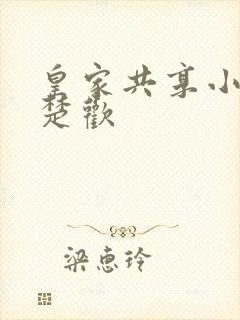 皇家共享小
楚歡
梁惠玲